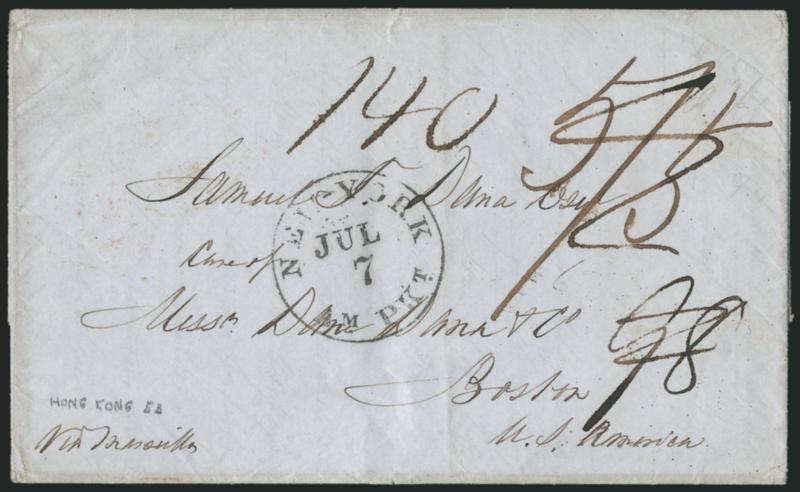 140 5/5
Samuel T. Dana Esq
Care of
Messrs Dana & Co
98
Boston
U.S. America
Via Marseilles
HONG KONG
NEW YORK
JUL
7
AM PKT